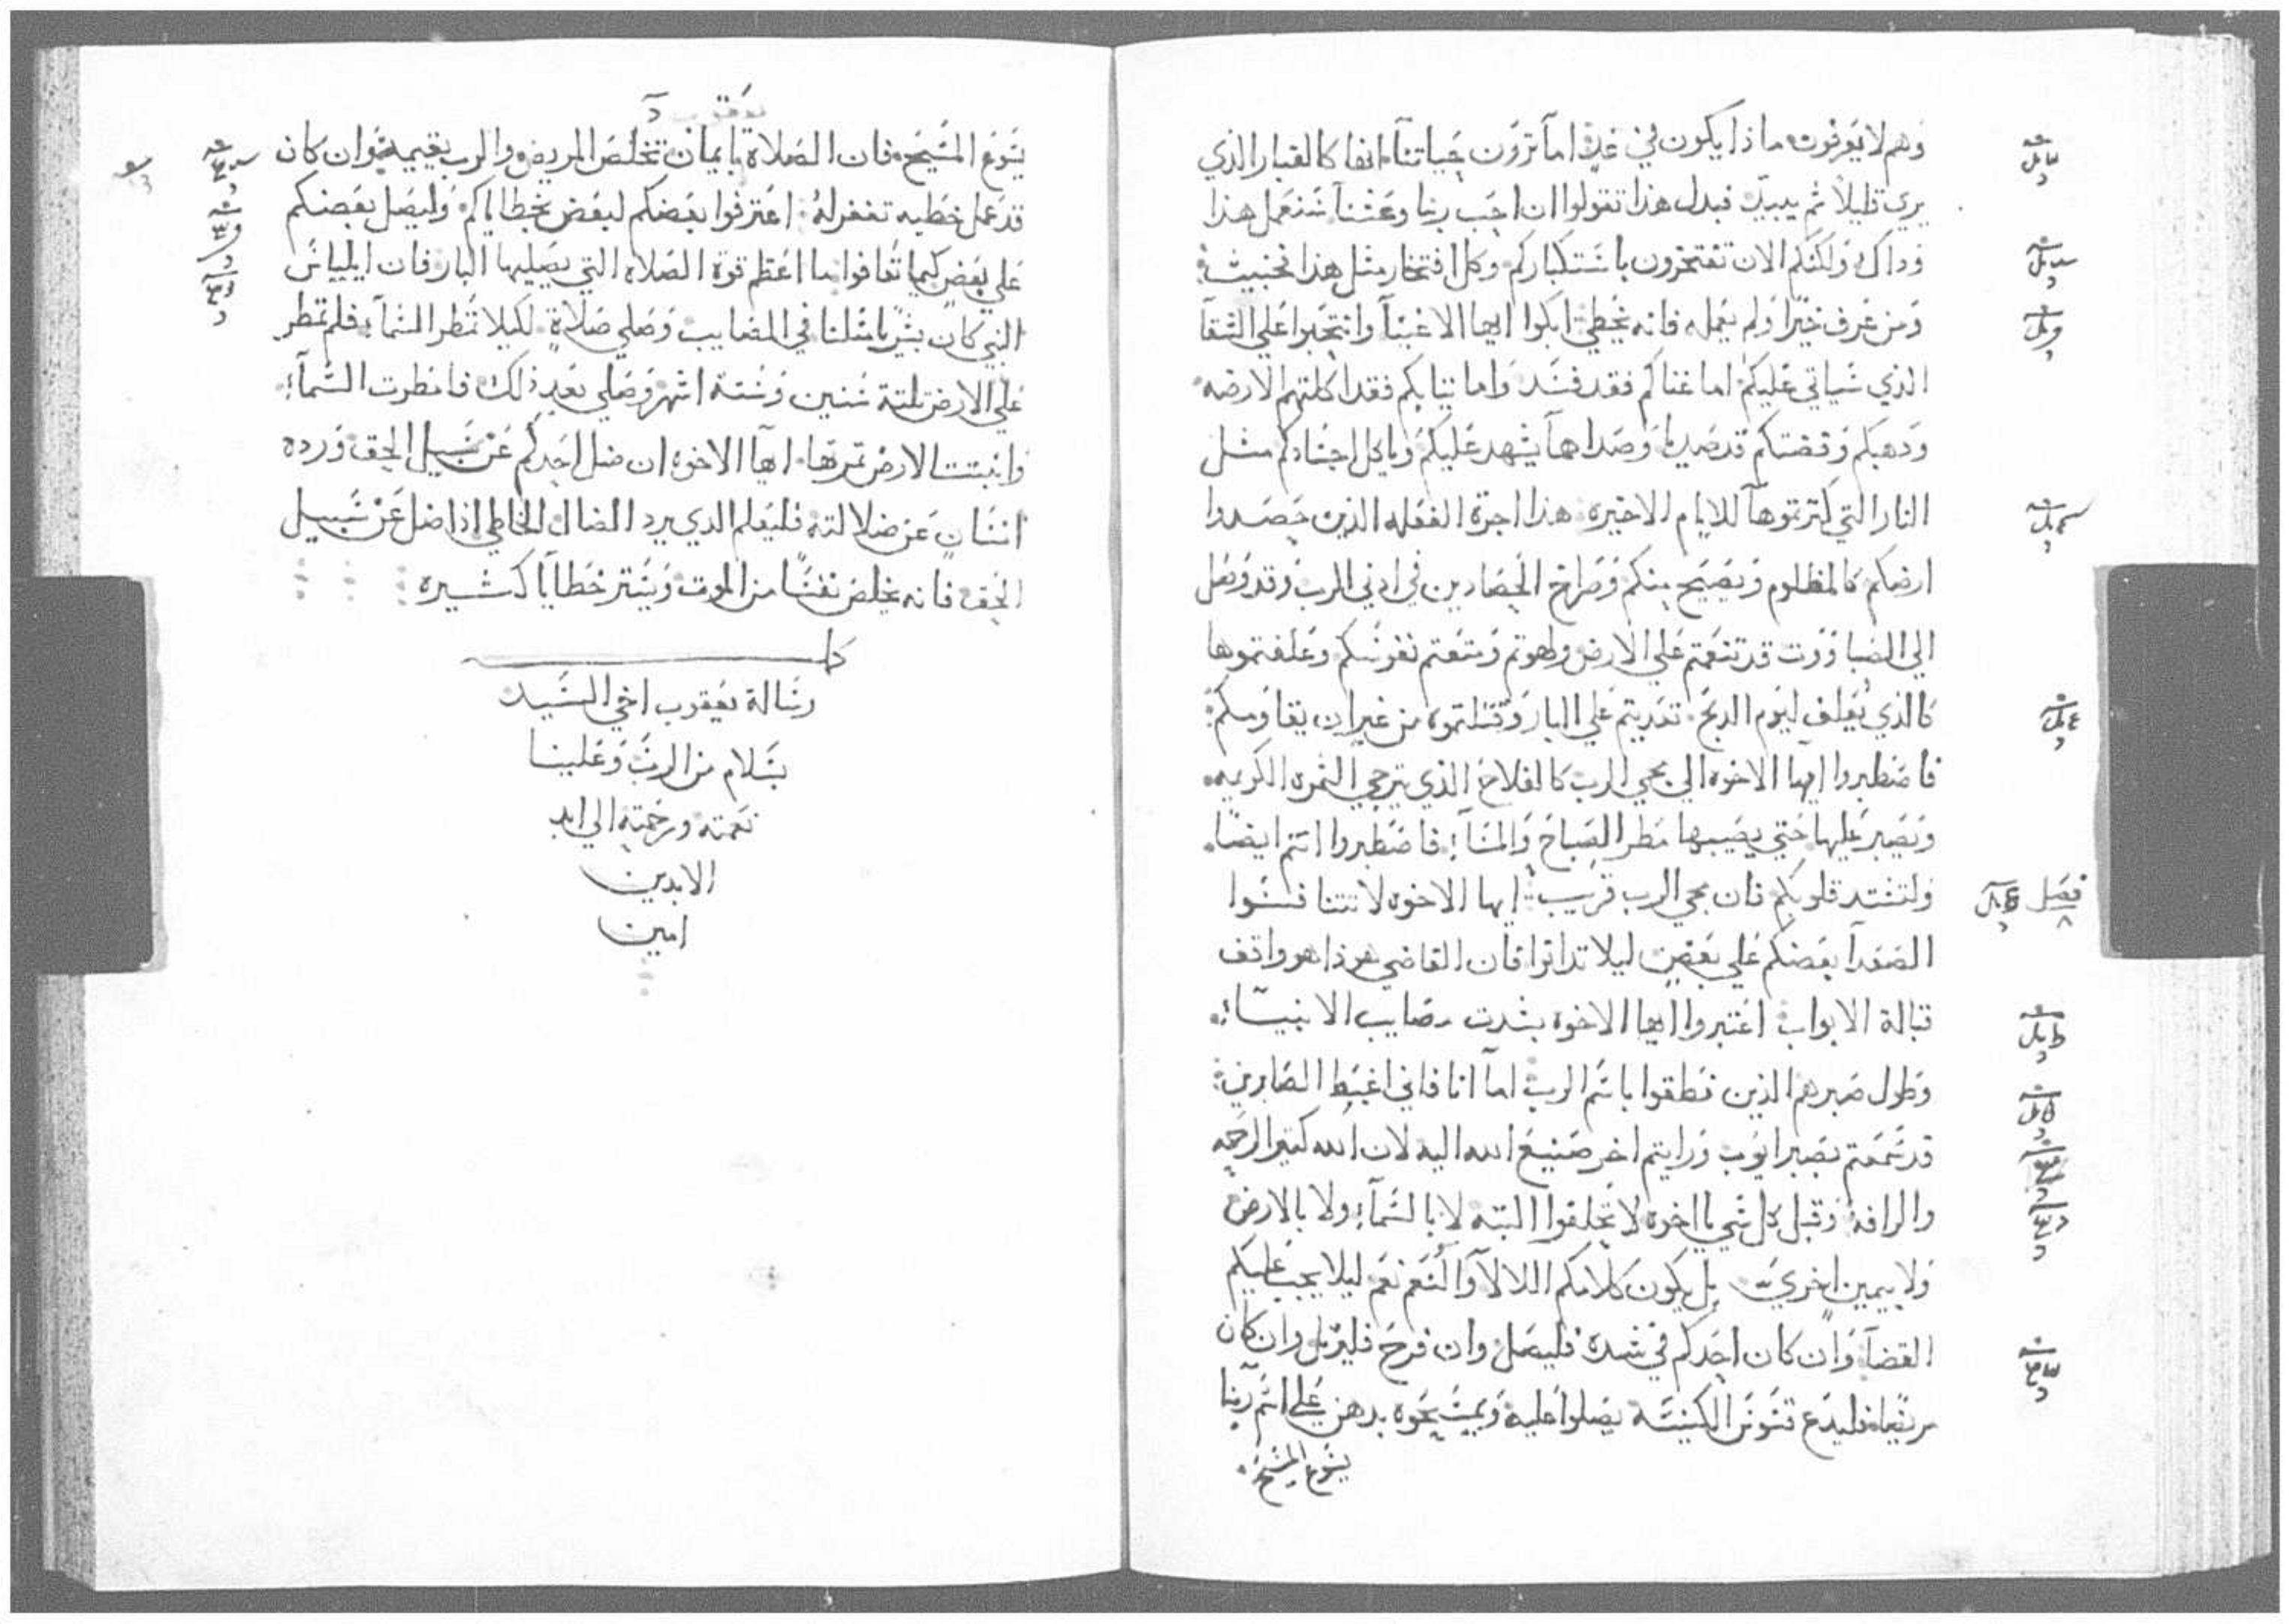 وهم لا يعرفون ماذا يكون في غدٍ اما ترون حياتنا انها كالغبار الذي
يري قليلاً ثم يبيد فبدل هذا تقولوا ان احب ربنا وعشنا سنعمل هذا
وذاك ولكنكم الان تفتخرون باستكباركم وكل افتخار مثل هذا فخبيث
ومن عرف خيراً ولم يعمله فانه يخطي ابكوا ايها الاغنيآ وانتحبوا علي الشقآ
الذي سياتي عليكم اما غناكم فقد فسد واما ثيابكم فقد اكلتهم الارضه
ودهبكم وفضتكم قد صديا وصداهما يشهد عليكم وياكل اجسادكم مثل
النار التي كنزتموها للايام الاخيره هذا اجرة الفعله الذين حصدوا
ارضكم كالمظلوم ويصيح منكم وصراخ الحصادين في اذني الرب وقد وصل
الي الصباووت قد تنعمتم علي الارض ولهوتم ومتعتم نفوسكم وعلفتموها
كالذي يعلف ليوم الدبح تعديتم علي البار وقتلتموه من غير ان يقاومكم
فاصطبروا ايها الاخوه الي مجي الرب كالفلاح الذي يترجي الثمره الكريمه
ويصبر عليها حتي يصيبها مطر الصباح والمسآ فاصطبروا انتم ايضا
ولتشتد قلوبكم فان مجي الرب قريب ايها الاخوه لا تتنافسوا
الصعدآ بعضكم علي بعض ليلا تدانوا فان القاضي هوذا هو واقف
قبالة الابواب اعتبروا ايها الاخوه بشدت مصايب الانبيآ
وطول صبرهم الذين نطقوا باسم الرب اما انا فاني اغبط الصابرين
قد سمعتم بصبر ايوب ورايتم اخر صنيع الله اليه لان الله كثير الرحمه
والرافه وقبل كل شي يا اخوه لا تحلفوا البته لا بالسمآ ولا بالارض
ولا بيمين اخري بل يكون كلامكم اللا لا والنعم نعم ليلا يجب عليكم
القضآ وان كان احدكم في شدة فليصل وان فرح فليرتل وان كان
مريضا فليدع قسوس الكنيسه يصلوا عليه ويمسحوه بدهن علي اسم ربنا
يسوع المسيح
فصل
يعقوب
يسوع المسيح فان الصلاة بايمان تخلص المريض والرب يقيمه وان كان
قد عمل خطيه تغفر له اعترفوا بعضكم لبعض بخطاياكم وليصل بعضكم
علي بعض كيما تعافوا ما اعظم قوة الصلاه التي يصليها البار فان ايلياس
النبي كان بشرياً مثلنا في المصايب وصلي صلاة لكيلا تمطر السمآ فلم تمطر
علي الارض تلتة سنين وستة اشهر وصلي بعد ذلك فامطرت السمآ
وانبتت الارض تمرتها ايها الاخوه ان ضل احدكم عن سبيل الحق ورده
انسان عن ضلالته فليعلم الدي يرد الضال الخاطي اذا ضل عن سبيل
الحق فانه يخلص نفسا من الموت ويستر خطايا كثيره
رسالة يعقوب اخي السيد
بسلام من الرب وعلينا
نعمته ورحمته الي ابد
الابدين
امين